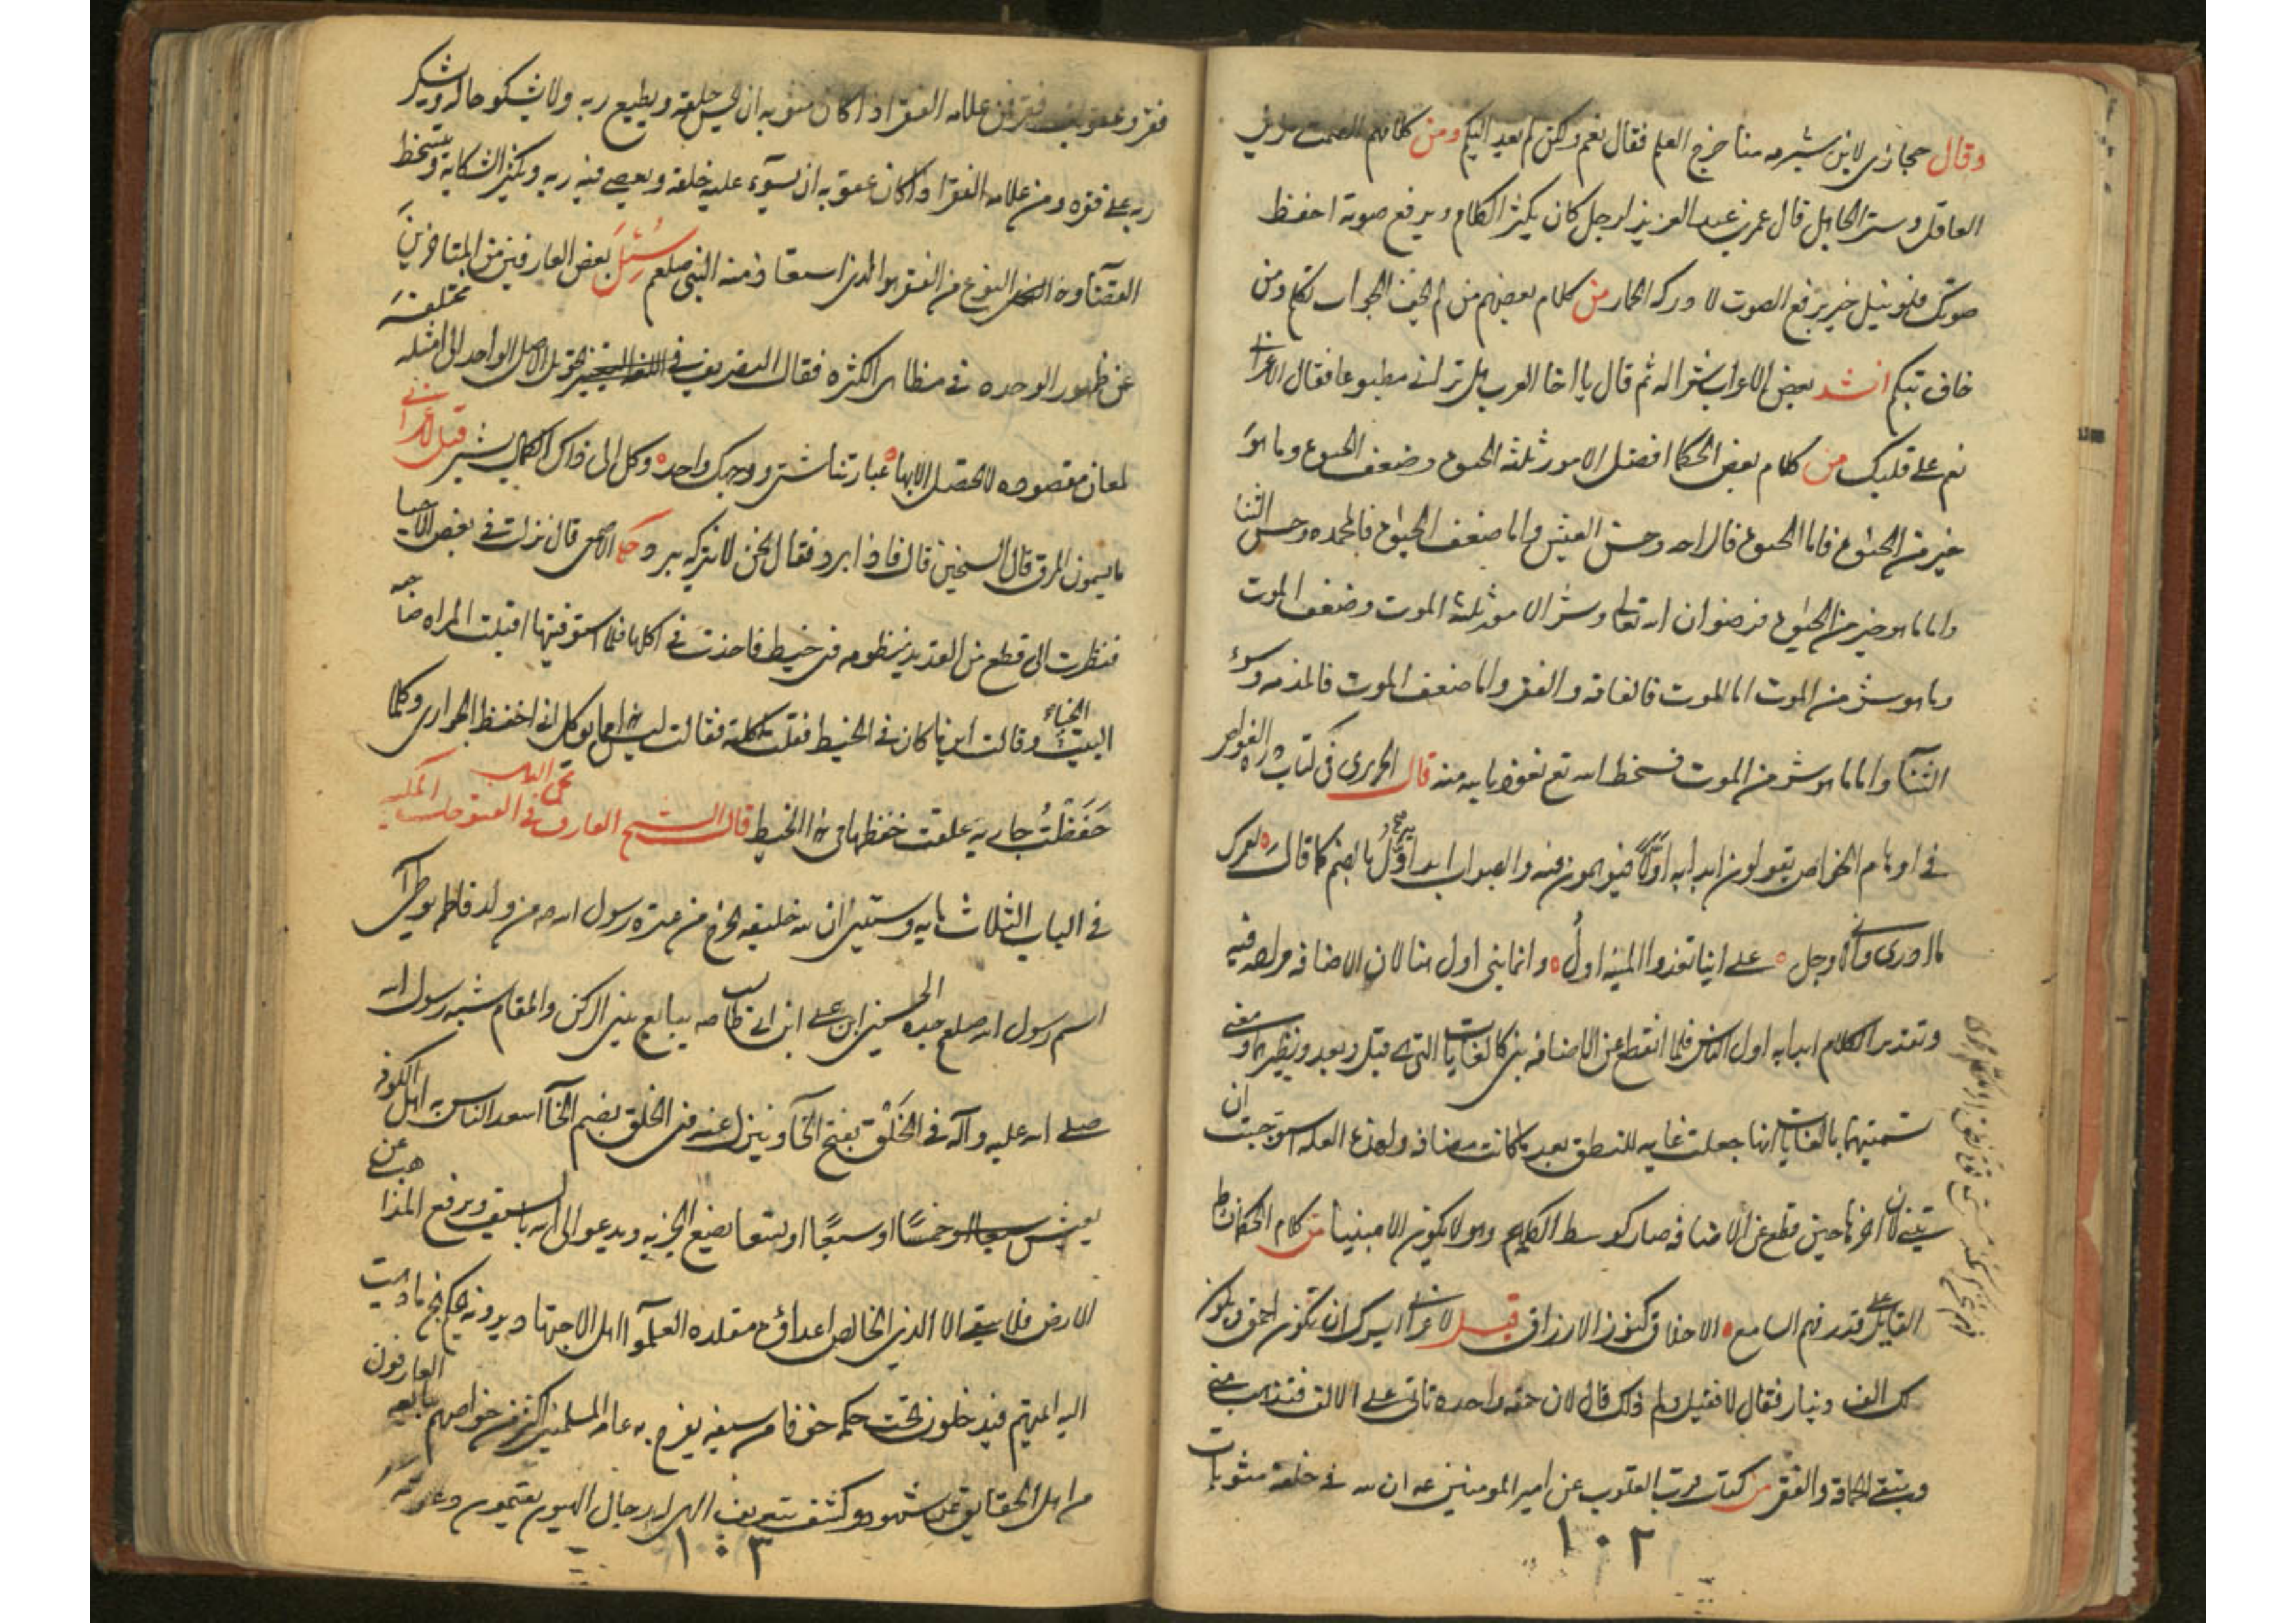 وقال حجازي لابن شبرمه منا خرج العلم فقال نعم ولكن لم يعد اليكم ومن كلامهم الصمت زين
العاقل وستر الجاهل قال عمر بن عبد العزيز لرجل كان يكثر الكلام ويرفع صوته اخفظ
صوتك فلو نيل خير برفع الصوت لادركه الحمار من كلام بعضهم من لم يخف الجواب تكلم ومن
خاف تبكم انشد بعض الاعراب شعرا له ثم قال يا اخا العرب هل تراني مطبوعا فقال الاعرابي
نعم على قلبك من كلام بعض الحكما افضل الامور ثلثه الحيوة وضعف الحيوة وما هو
خير من الحيوة فاما الحيوة فالراحه وحسن العيش واما ضعف الحيوة فالمحمده وحسن الثنا
واما ما هو خير من الحيوة فرضوان الله تعالى وشر الامور ثلثه الموت وضعف الموت
وما هو شر من الموت اما الموت فالفاقه والفقر واما ضعف الموت فالمذمه وسوء
الثنآ واما ما هو شر من الموت فسخط الله تع نعوذ بالله منه قال الحريري في كتاب دره الغواص
في اوهام الخواص يقولون ابدا به اولا فيوهمون فيه والصواب ابدا به اول بالضم كما قال لعمرك
ما ادري واني لاوجل على اينا تعدوا المنيه اول وانما بني اول هنا لان الاضافه مراده فيه
وتقدير الكلام ابدا به اول الناس فلما انقطع عن الاضافه بني كالغايات التي هي قبل وبعد ونظيرهما ومعنى
تسميتهما بالغايات انها جعلت غايه للنطق بعد ما كانت مضافه ولهذه العله استوجبت ان
تبنى لان اخرها حين قطع عن الاضافه صار كوسط الكلمه وهو لا يكون الا مبنيا من كلام الحكما نشاط
القايل على قدر فهم السامع الاخلاق كنوز الارزاق قيل لاعرابي ايسرك ان تكون احمق وتكون
لك الف دينار فقال لا فقيل ولم ذلك قال لان حمقه واحده تاتي على الالف فتذهب مني
ويبقى الحماقه والفقر من كتاب قوت القلوب عن امير المومنين عه ان لله في خلقه مثوبات
١٠٢
فقر وعقوبات فقر فمن علامه الفقر اذا كان مثوبه ان يحسن خلقه ويطيع ربه ولا يشكو حاله ويشكر
ربه على فقره ومن علامه الفقر اذا كان عقوبه ان يسوء عليه خلقه ويعصي فيه ربه ويكثر الشكايه ويتسخط
القضآ وهذا النوع من الفقر هو الذي استعاذ منه النبي صلعم سئل بعض العارفين من المتاخرين
عن ظهور الوحده في مظاهر الكثره فقال التصريف في اللغه التغيير تحويل الاصل الواحد الى امثله مختلفه
لمعان مقصوده لا تحصل الا بها عباراتنا شتى ووجهك واحد وكل الى ذاك الجمال يشير قيل لاعرابي
ما يسمون المرق قال السخين قال فاذا برد فقال نحن لا نتركه يبرد حكى الاصمعي قال نزلت في بعض الاحيا
فنظرت الى قطع من القديد منظومه في خيط فاخذت في اكلها فلما استوفيتها اقبلت المراه صاحبه
البيت الخباء وقالت اين ما كان في الخيط فقلت اكلته فقالت ليس هذا مما يوكل اني اخفظ الجواري وكلما
خفظت جاريه علقت خفظها في هذا الخيط قال الشيخ العارف محي الدين في الفتوحات المكيه
في الباب الثلاث مايه وستين ان لله خليفه يخرج من عتره رسول الله ص من ولد فاطمه يواطي
اسم رسول الله صلعم جده الحسين ابن علي ابن ابي طالب يبايع بين الركن والمقام يشبه رسول الله
صلى الله عليه وآله في الخلق بفتح الخآ وينزل عنه في الخلق بضم الخآ اسعد الناس به اهل الكوفه
يعيش خمسا او سبعا او تسعا يضع الجزيه ويدعو الى الله بالسيف ويرفع المذاهب عن
الارض فلا يبقى الا الدين الخالص اعداؤه مقلده العلمآ اهل الاجتهاد يرونه يحكم بخ ما ذهبت
اليه ائمتهم فيدخلون تحت حكمه خوفا من سيفه يفرح به عامه المسلمين اكثر من خواصهم يبايعه العارفون
من اهل الحقايق عن شهود وكشف بتعريف الهي له رجال الهيون يقيمون دعوته
١٠٣